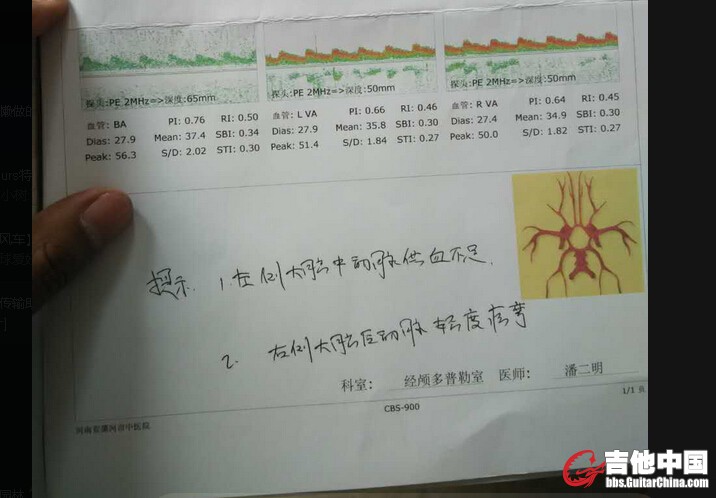 探头:PE 2MHz=>深度:65mm
血管: BA PI: 0.76 RI: 0.50
Dias: 27.9 Mean: 37.4 SBI: 0.34
Peak: 56.3 S/D: 2.02 STI: 0.30
探头:PE 2MHz=>深度:50mm
血管: L VA PI: 0.66 RI: 0.46
Dias: 27.9 Mean: 35.8 SBI: 0.30
Peak: 51.4 S/D: 1.84 STI: 0.27
探头:PE 2MHz=>深度:50mm
血管: R VA PI: 0.64 RI: 0.45
Dias: 27.4 Mean: 34.9 SBI: 0.30
Peak: 50.0 S/D: 1.82 STI: 0.27
提示 1.左侧大脑中动脉供血不足.
2. 左侧大脑后动脉轻度痉挛
科室: 经颅多普勒室 医师: 潘二明
1/1 页
CBS-900
河南省漯河市中医院
吉他中国
bbs.GuitarChina.com